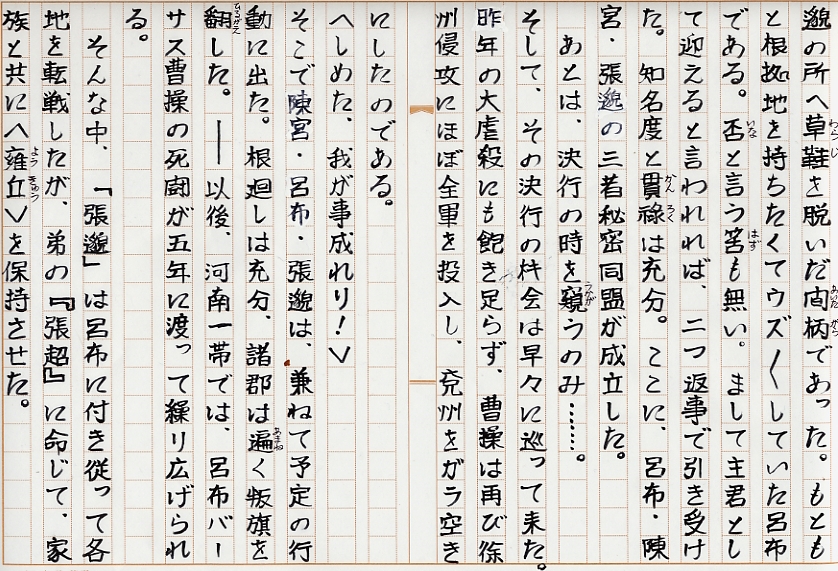 邈の所へ草鞋を脱いだ間柄であった。もとも
と根拠地を持ちたくてウズ〱していた呂布
である。否と言う筈も無い。まして主君とし
て迎えると言われれば、二つ返事で引き受け
た。知名度と貫祿は充分。ここに、呂布・陳
宮・張邈の三者秘密同盟が成立した。
あとは、決行の時を窺うのみ……。
そして、その決行の杵会は早々に巡って来た。
昨年の大虐殺にも飽き足らず、曹操は再び徐
州侵攻にほぼ全軍を投入し、兗州をガラ空き
にしたのである。
へしめた、我が事成れり！＞
そこで陳宮・呂布・張邈は、兼ねて予定の行
動に出た。根廻しは充分、諸郡は遍く叛旗を
翻した。――以後、河南一帯では、呂布バー
サス曹操の死闘が五年に渡って繰り広げられ
る。
そんな中、「張邈」は呂布に付き従って各
地を転戦したが、弟の『張超』に命じて、家
族と共にへ雍丘＞を保持させた。